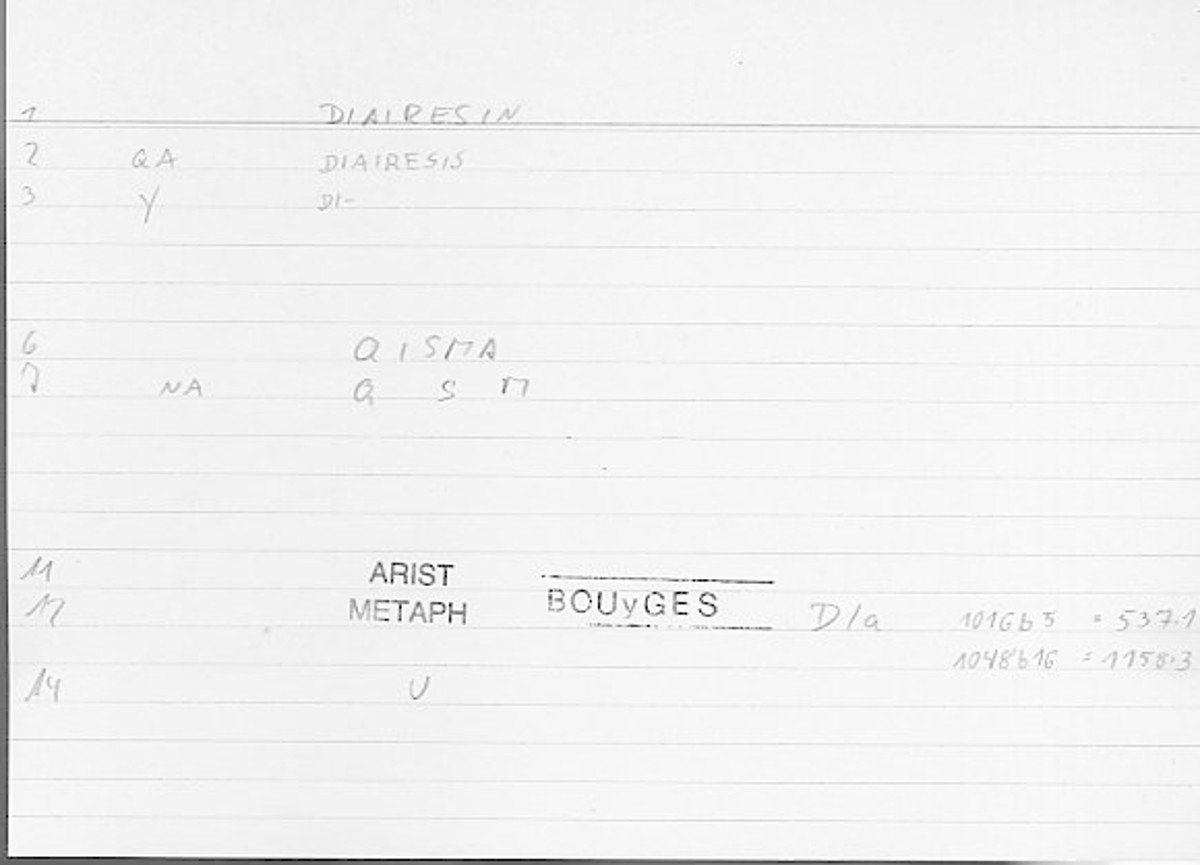 1 DIAIRESIN
2 QA DIAIRESIS
3 Y DI-
6 QISMA
7 NA Q S M
11 ARIST
12 METAPH BOUyGES D/a 1016b5 = 537.1
1048b16 = 1158.3
14 U